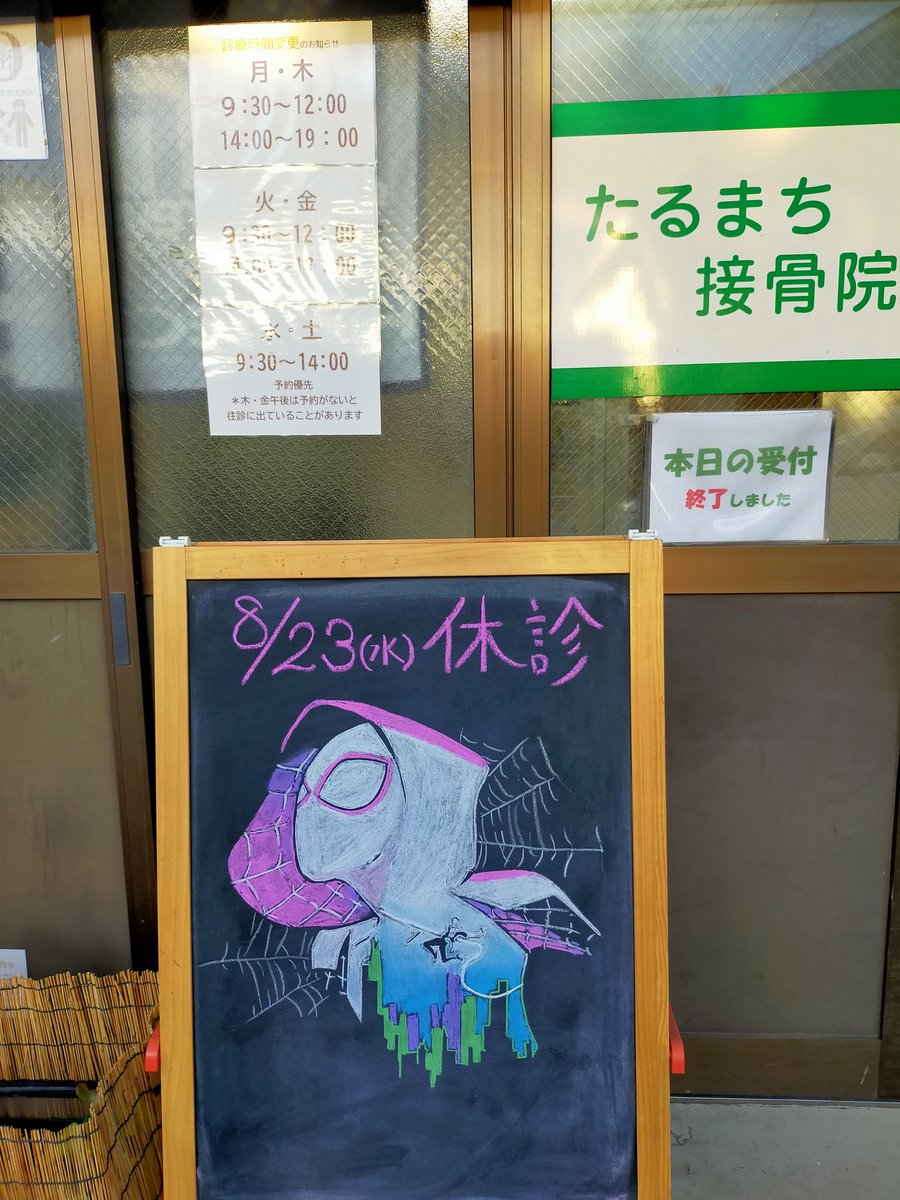 診療時間変更のお知らせ
月・木
9:30～12:00
14:00～19:00
火・金
9:30～12:00
水・土
9:30～14:00
予約優先
＊木・金午後は予約がないと
往診に出ていることがあります
たるまち
接骨院
本日の受付
終了しました
8/23(水)休診